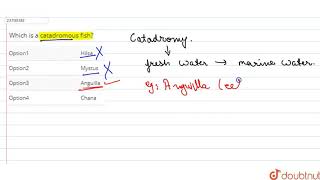 Which is a catadromous fish?
Option1 Hilsa
Option2 Mystus
Option3 Anguilla
Option4 Chana
Catadromy.
fresh water → marine water.
g: Anguilla (ee
doubtnut